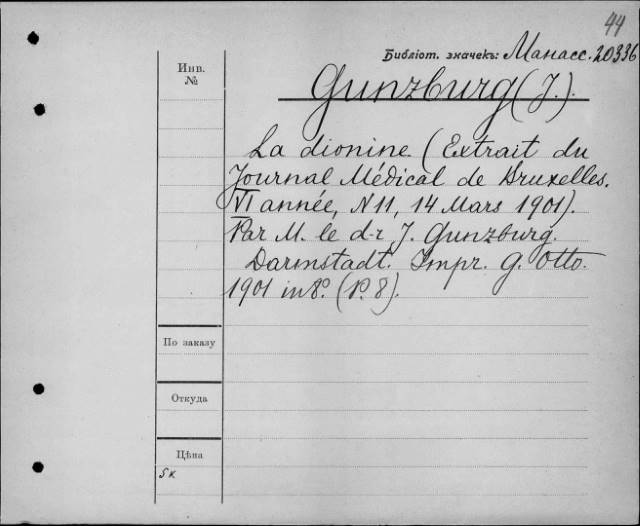 44
Библіот. значекъ: Манасс. 20336
Инв. №
Gunzburg (J.).
La dionine (Extrait du
Journal Médical de Bruxelles.
VI année, N 11, 14 Mars 1901).
Par M. le d-r J. Gunzburg.
Darmstadt. Impr. G. Otto.
1901 in 8°. (P. 8).
По заказу
Откуда
Цѣна
5к